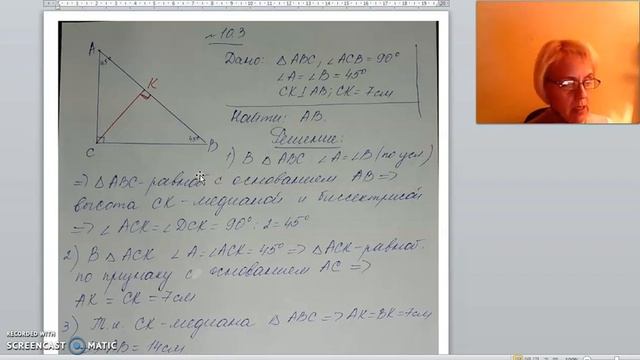 № 10.3
Дано: △ ABC, ∠ACB = 90°
∠A = ∠B = 45°
CK ⊥ AB; CK = 7см
Найти: AB.
Решение:
A
45°
K
C
45°
B
1) В △ ABC ∠A = ∠B (по усл)
=> △ ABC - равноб с основанием AB =>
высота CK - медианой и биссектрисой
=> ∠ ACK = ∠ DCK = 90° : 2 = 45°
2) В △ ACK ∠A = ∠ACK = 45° => △ ACK - равноб.
по признаку с основанием AC =>
AK = CK = 7см
3) Т.к. CK - медиана △ ABC => AK = BK = 7см
AB = 14см
RECORDED WITH
SCREENCAST MATIC